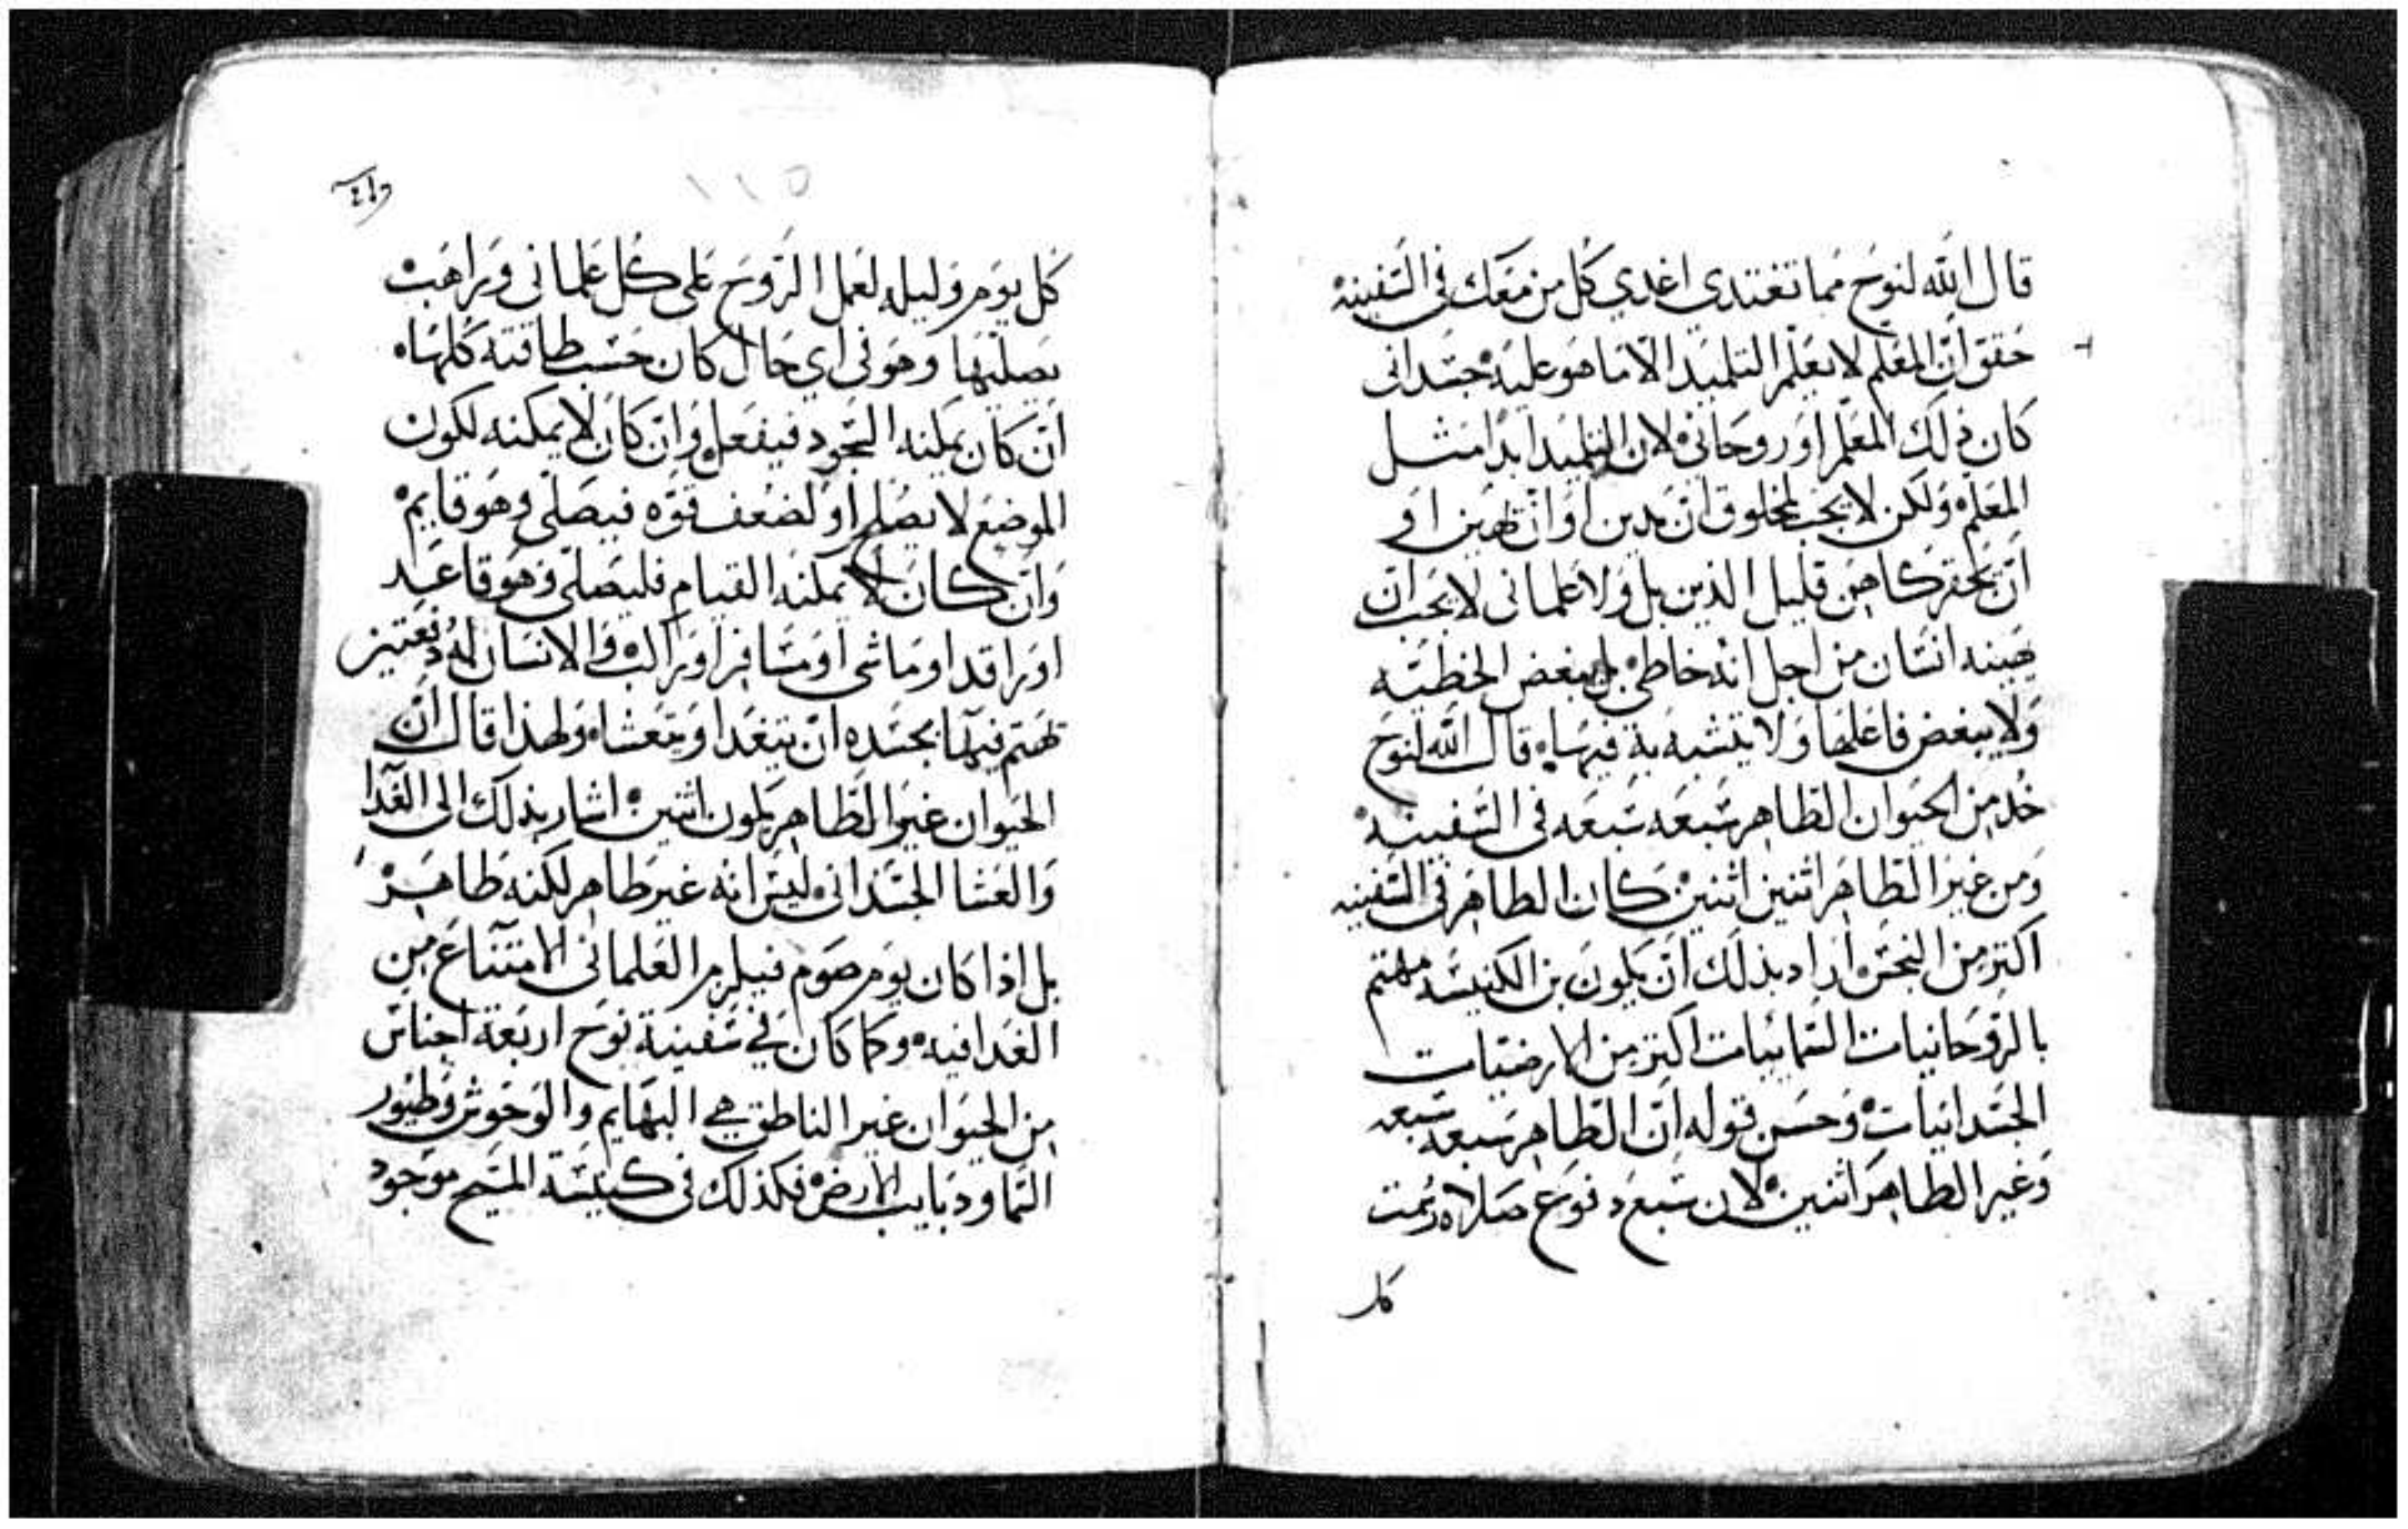 قال الله لنوح مما تغتدي اغدي كل من معك في السفينه
حقق ان المعلم لا يعلم التلميد الا ما هو عليه جسداني
كان ذلك المعلم او روحاني لان التلميد ابدا مثل
المعلم ولكن لا يجب لمخلوق ان يدين او ان يهين او
ان يحقر كاهن قليل الدين بل ولا علماني لا يجب ان
يهينه انسان من اجل انه خاطي بل يبغض الخطيه
ولا يبغض فاعلها ولا يتشبه به فيها قال الله لنوح
خد من الحيوان الطاهر سبعه سبعه في السفينه
ومن غير الطاهر اثنين اثنين كان الطاهر في السفينه
اكتر من النجس اراد بذلك ان يكون بن الكنيسه مهتم
بالروحانيات السمائيات اكتر من الارضيات
الجسدانيات وحسن قوله ان الطاهر سبعه سبعه
وغير الطاهر اثنين لان سبع دفوع صلاه رسمت
كل
كل يوم وليله لعمل الروح على كل علماني وراهب
يصليها وهو في اي حال كان حسب طاقته كلها
ان كان يمكنه السجود فيفعل وان كان لا يمكنه لكون
الموضع لا يصلح او لضعف قوه فيصلي وهو قايم
وان كان لا يمكنه القيام فليصلي وهو قاعد
او راقد او ماشي او مسافر او راكب والانسان له دفعتين
يهتم فيها بجسده ان يتغدا او يتعشا ولهذا قال ان
الحيوان غير الطاهر يكون اثنين اشار بذلك الى الغدا
والعشا الجسداني ليس انه غير طاهر لكنه طاهر
بل اذا كان يوم صوم فيلزم العلماني الامتناع من
الغدا فيه وكما كان في سفينة نوح اربعة اجناس
من الحيوان غير الناطق هي البهايم والوحوش وطيور
السما ودبايب الارض فكذلك في كنيسة المسيح موجود